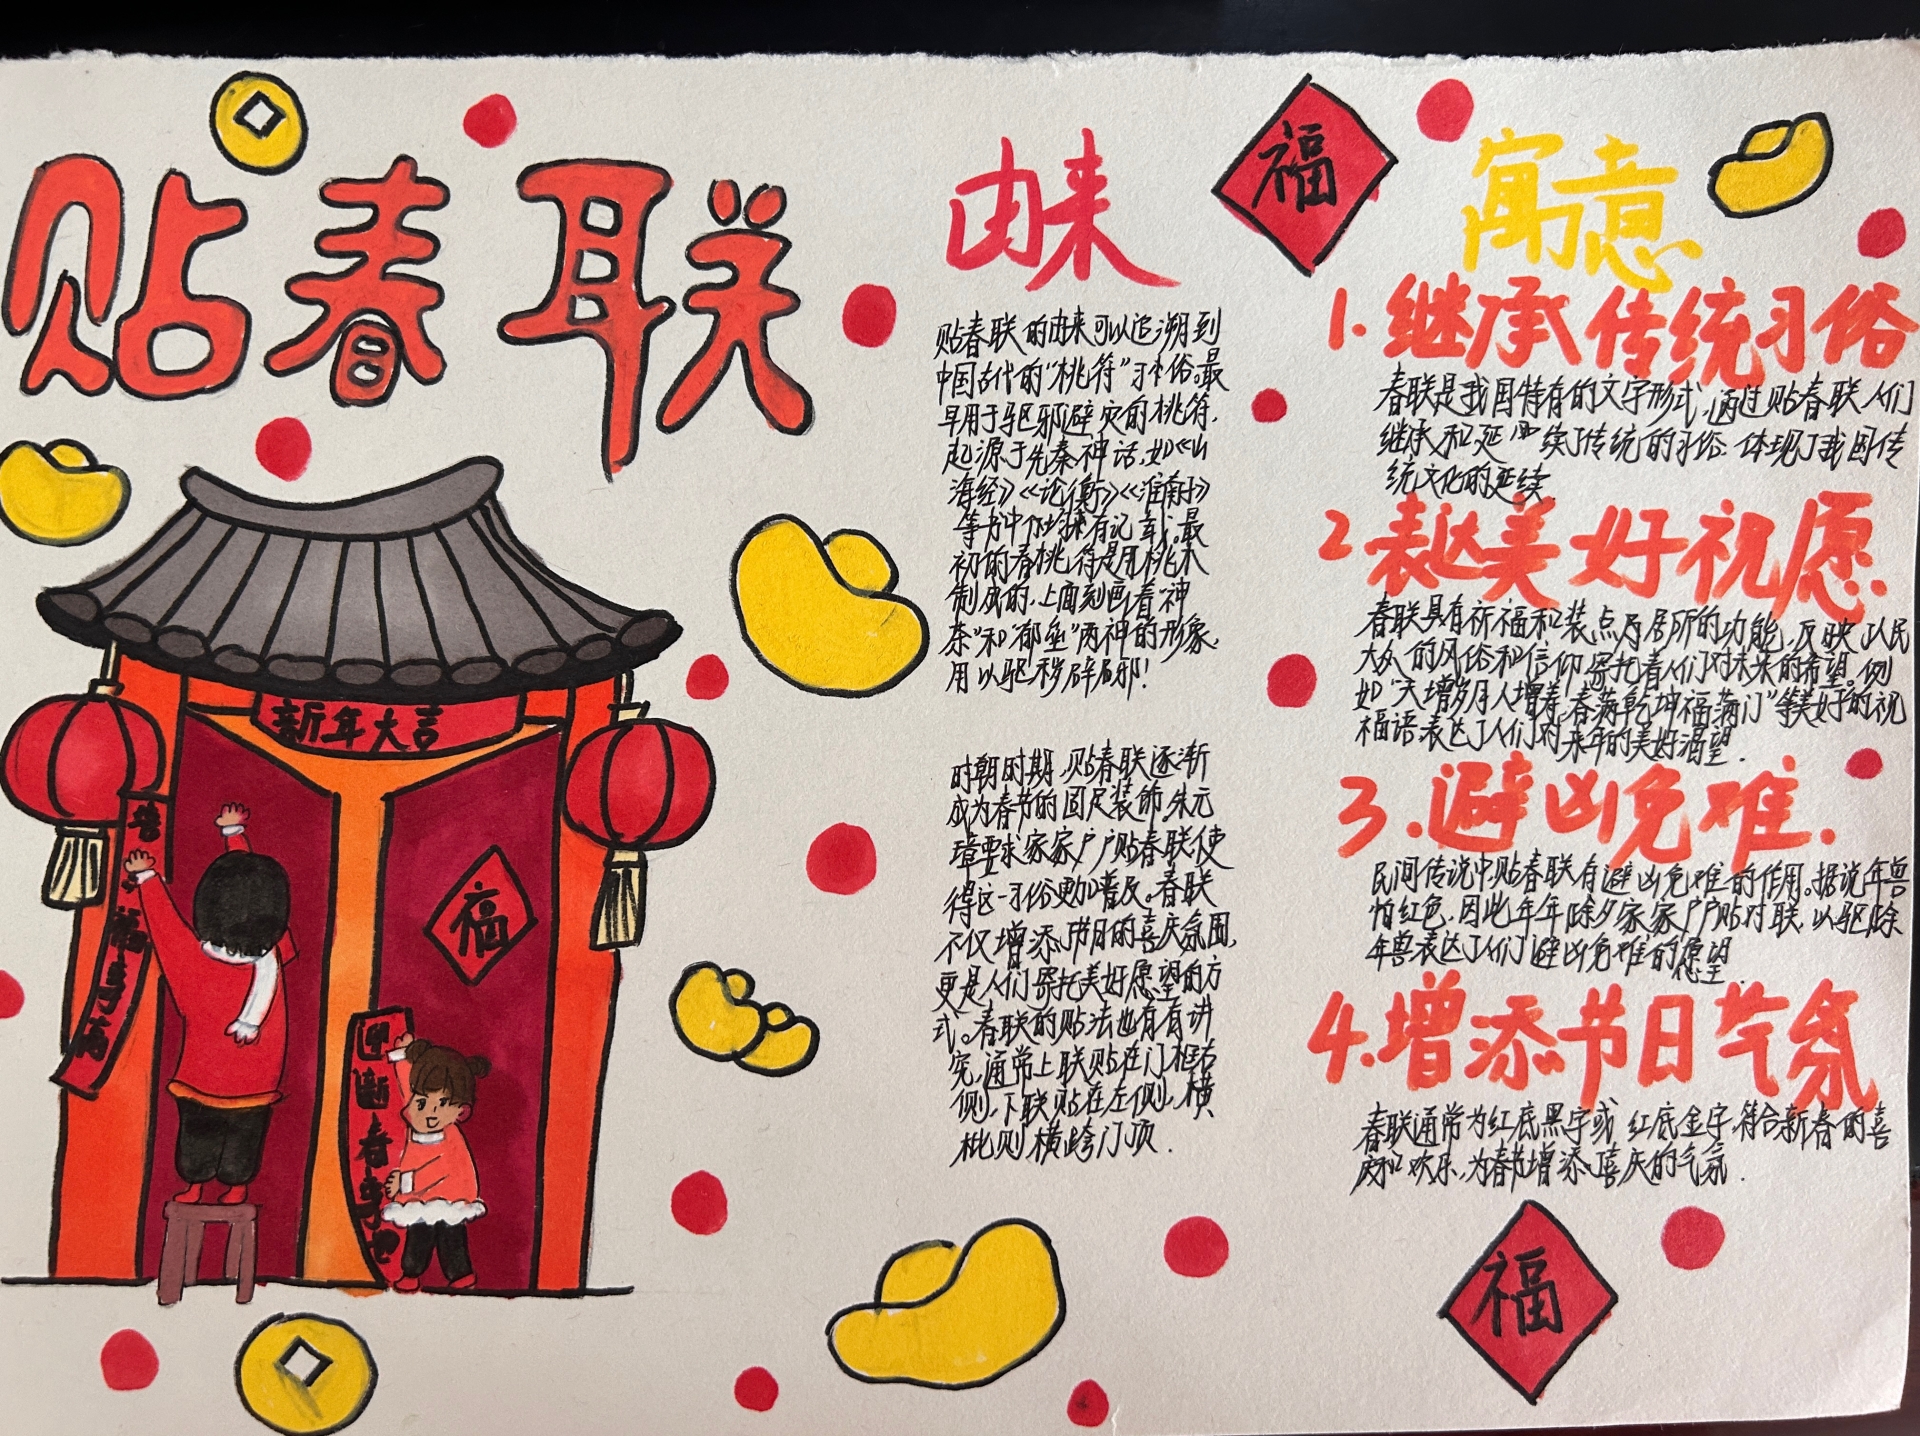 贴春联
新年大吉
福
迎新春
由来
贴春联的由来可以追溯到
中国古代的“桃符”习俗。最
早用于驱邪避灾的桃符,
起源于先秦神话,如《山
海经》《论衡》《淮南子》
等书中均有记载。最
初的春桃符是用桃木
制成的,上面刻画着“神
荼”和“郁垒”两神的形象,
用以驱秽辟邪!
时朝时期,贴春联逐渐
成为春节的固定装饰。朱元
璋要求家家户户贴春联使
得这一习俗更加普及。春联
不仅增添了节日的喜庆氛围,
更是人们寄托美好愿望的方
式。春联的贴法也有有讲
究,通常上联贴在门框右
侧,下联贴在左侧,横
批则横跨门顶.
福
寓意
1.继承传统习俗
春联是我国特有的文字形式,通过贴春联人们
继承和延续了传统的习俗.体现了我国传
统文化的延续.
2.表达美好祝愿.
春联具有祈福和装点居所的功能,反映了人民
大众的风俗和信仰,寄托着人们对未来的希望。例
如“天增岁月人增寿,春满乾坤福满门”等美好的祝
福语表达了人们对来年的美好渴望.
3.避凶免难.
民间传说中贴春联有避凶免难的作用。据说年兽
怕红色,因此年年除夕家家户户贴对联,以驱除
年兽表达了人们避凶免难的愿望.
4.增添节日气氛
春联通常为红底黑字或红底金字,符合新春的喜
庆和欢乐,为春节增添了喜庆的气氛.
福